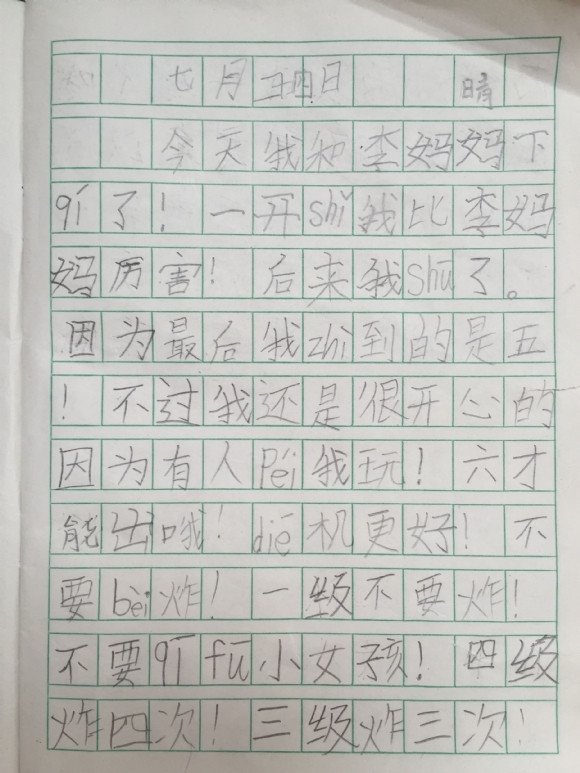 七月三十四日 晴
今天我和李妈妈下
qí了！一开shǐ我比李妈
妈厉害！后来我shū了。
因为最后我zhì到的是五
！不过我还是很开心的
因为有人Péi我玩！六才
能出哦！diē机更好！不
要bèi炸！一级不要炸！
不要qī fū小女孩！四级
炸四次！三级炸三次！